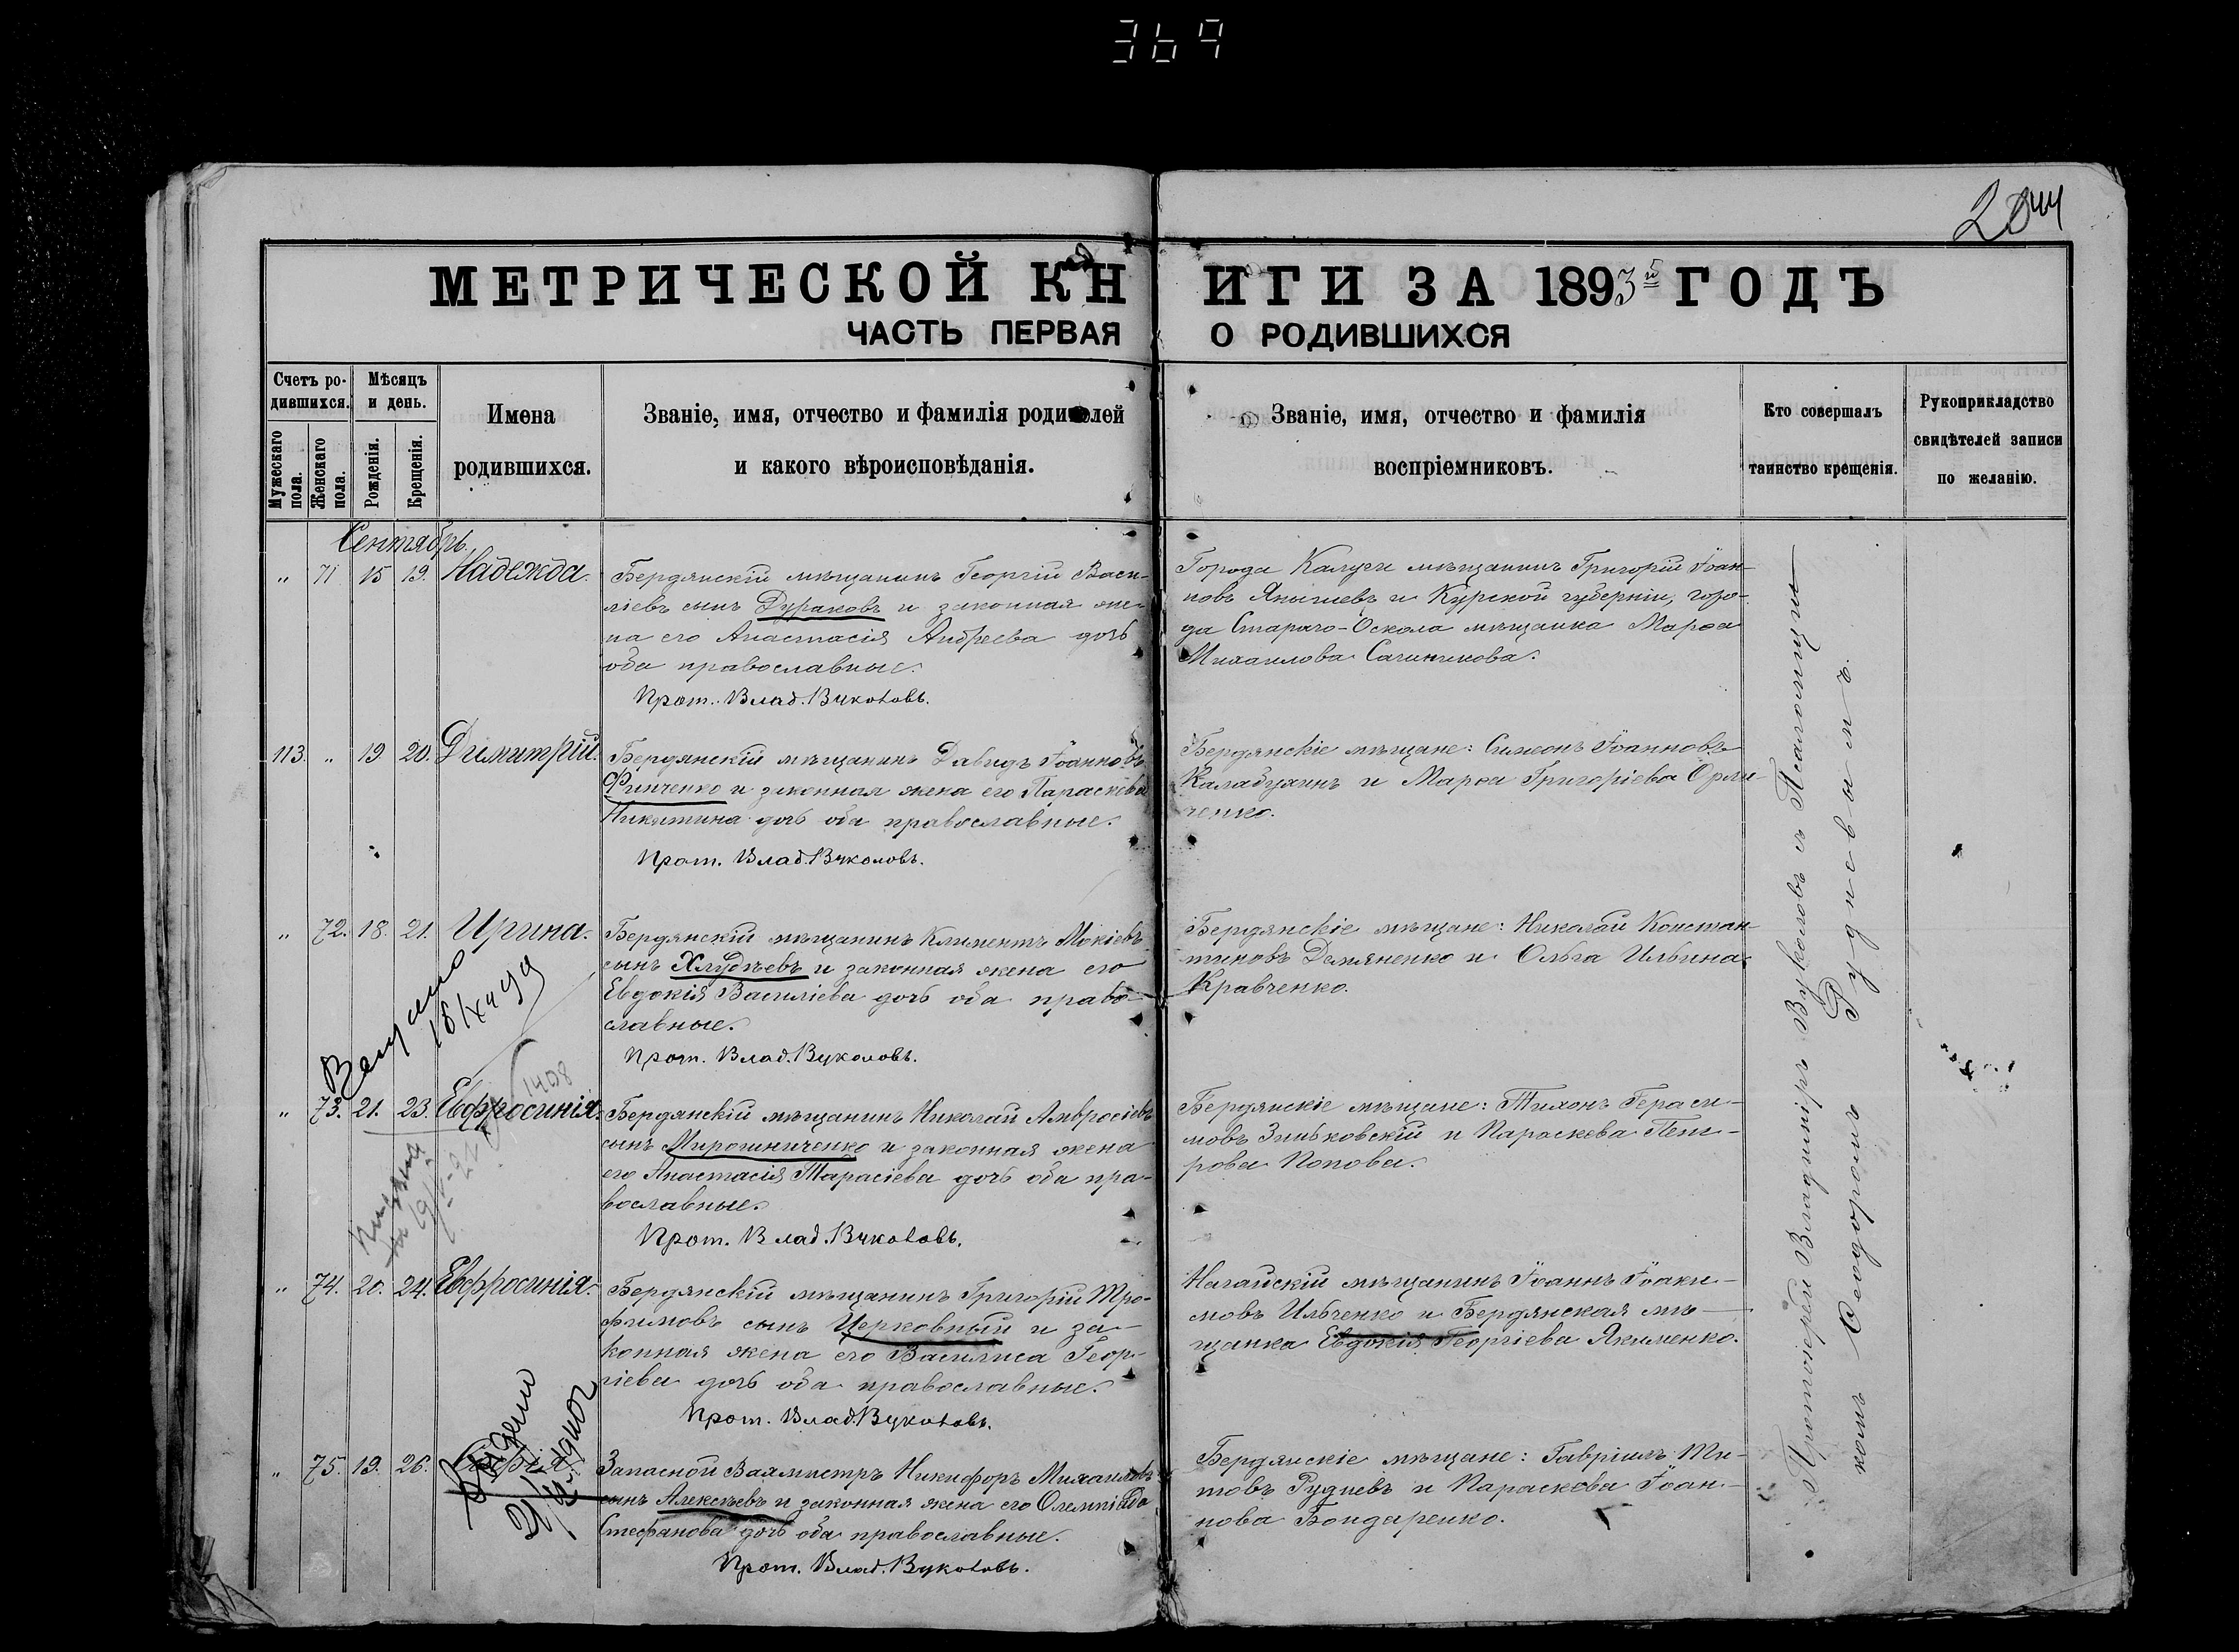 369
204
МЕТРИЧЕСКОЙ КНИГИ ЗА 1893й ГОДЪ
ЧАСТЬ ПЕРВАЯ О РОДИВШИХСЯ
Счетъ ро-
дившихся.
Мужескаго
пола.
Женскаго
пола.
Мѣсяцъ
и день.
Рожденія.
Крещенія.
Имена
родившихся.
Званіе, имя, отчество и фамилія родителей
и какого вѣроисповѣданія.
Званіе, имя, отчество и фамилія
воспріемниковъ.
Кто совершалъ
таинство крещенія.
Рукоприкладство
свидѣтелей записи
по желанію.
Сентябрь.
„ 71 15 19. Надежда.
Бердянскій мѣщанинъ Георгій Васи-
ліевъ сынъ Дураковъ и законная же-
на его Анастасія Андреева дочь
оба православные.
Прот. Влад. Вуколовъ.
Города Калуги мѣщанинъ Григорій Іоан-
новъ и Курской губерніи, горо-
да Стараго-Оскола мѣщанка Марѳа
Михаилова
113. „ 19 20. Димитрій.
Бердянскій мѣщанинъ Давидъ Іоанновъ
Финченко и законная жена его Параскева
Никитина дочь оба православные.
Прот. Влад. Вуколовъ.
Бердянскіе мѣщане: Симеонъ Іоанновъ
Калабухинъ и Марѳа Григоріева Орли
ченко.
„ 72. 18. 21. Ирина.
Бердянскій мѣщанинъ Климентъ Мокіевъ
сынъ Хлудѣевъ и законная жена его
Евдокія Василіева дочь оба право-
славные.
Прот. Влад. Вуколовъ.
Бердянскіе мѣщане: Николай Констан-
тиновъ Демяненко и Ольга Ильина
Кравченко.
„ 73. 21. 23. Евфросинія.
1408
Бердянскій мѣщанинъ Николай Амвросіевъ
сынъ Мирошниченко и законная жена
его Анастасія Тарасіева дочь оба пра-
вославные.
Прот. Влад. Вуколовъ.
Бердянскіе мѣщане: Тихонъ Гераси-
мовъ Зиньковскій и Параскева Пет-
рова Попова.
„ 74. 20. 24. Евфросинія.
Бердянскій мѣщанинъ Григорій Тро-
фимовъ сынъ Церковный и за-
конная жена его Василиса Геор-
гіева дочь оба православные.
Прот. Влад. Вуколовъ.
Нагайскій мѣщанинъ Іоаннъ Іоаки-
мовъ Ильченко и Бердянская мѣ-
щанка Евдокія Георгіева Якименко.
„ 75. 19. 26.
Запасной Вахмистръ Никифоръ Михаиловъ
сынъ Алексѣевъ и законная жена его Олимпіада
Стефанова дочь оба православные.
Прот. Влад. Вуколовъ.
Бердянскіе мѣщане: Гавріилъ Ти-
товъ Рудневъ и Параскева Іоан-
нова Бондаренко.
Протоіерей Владиміръ Вуколовъ съ Псаломщи-
комъ Ѳеодоромъ Рудневымъ.